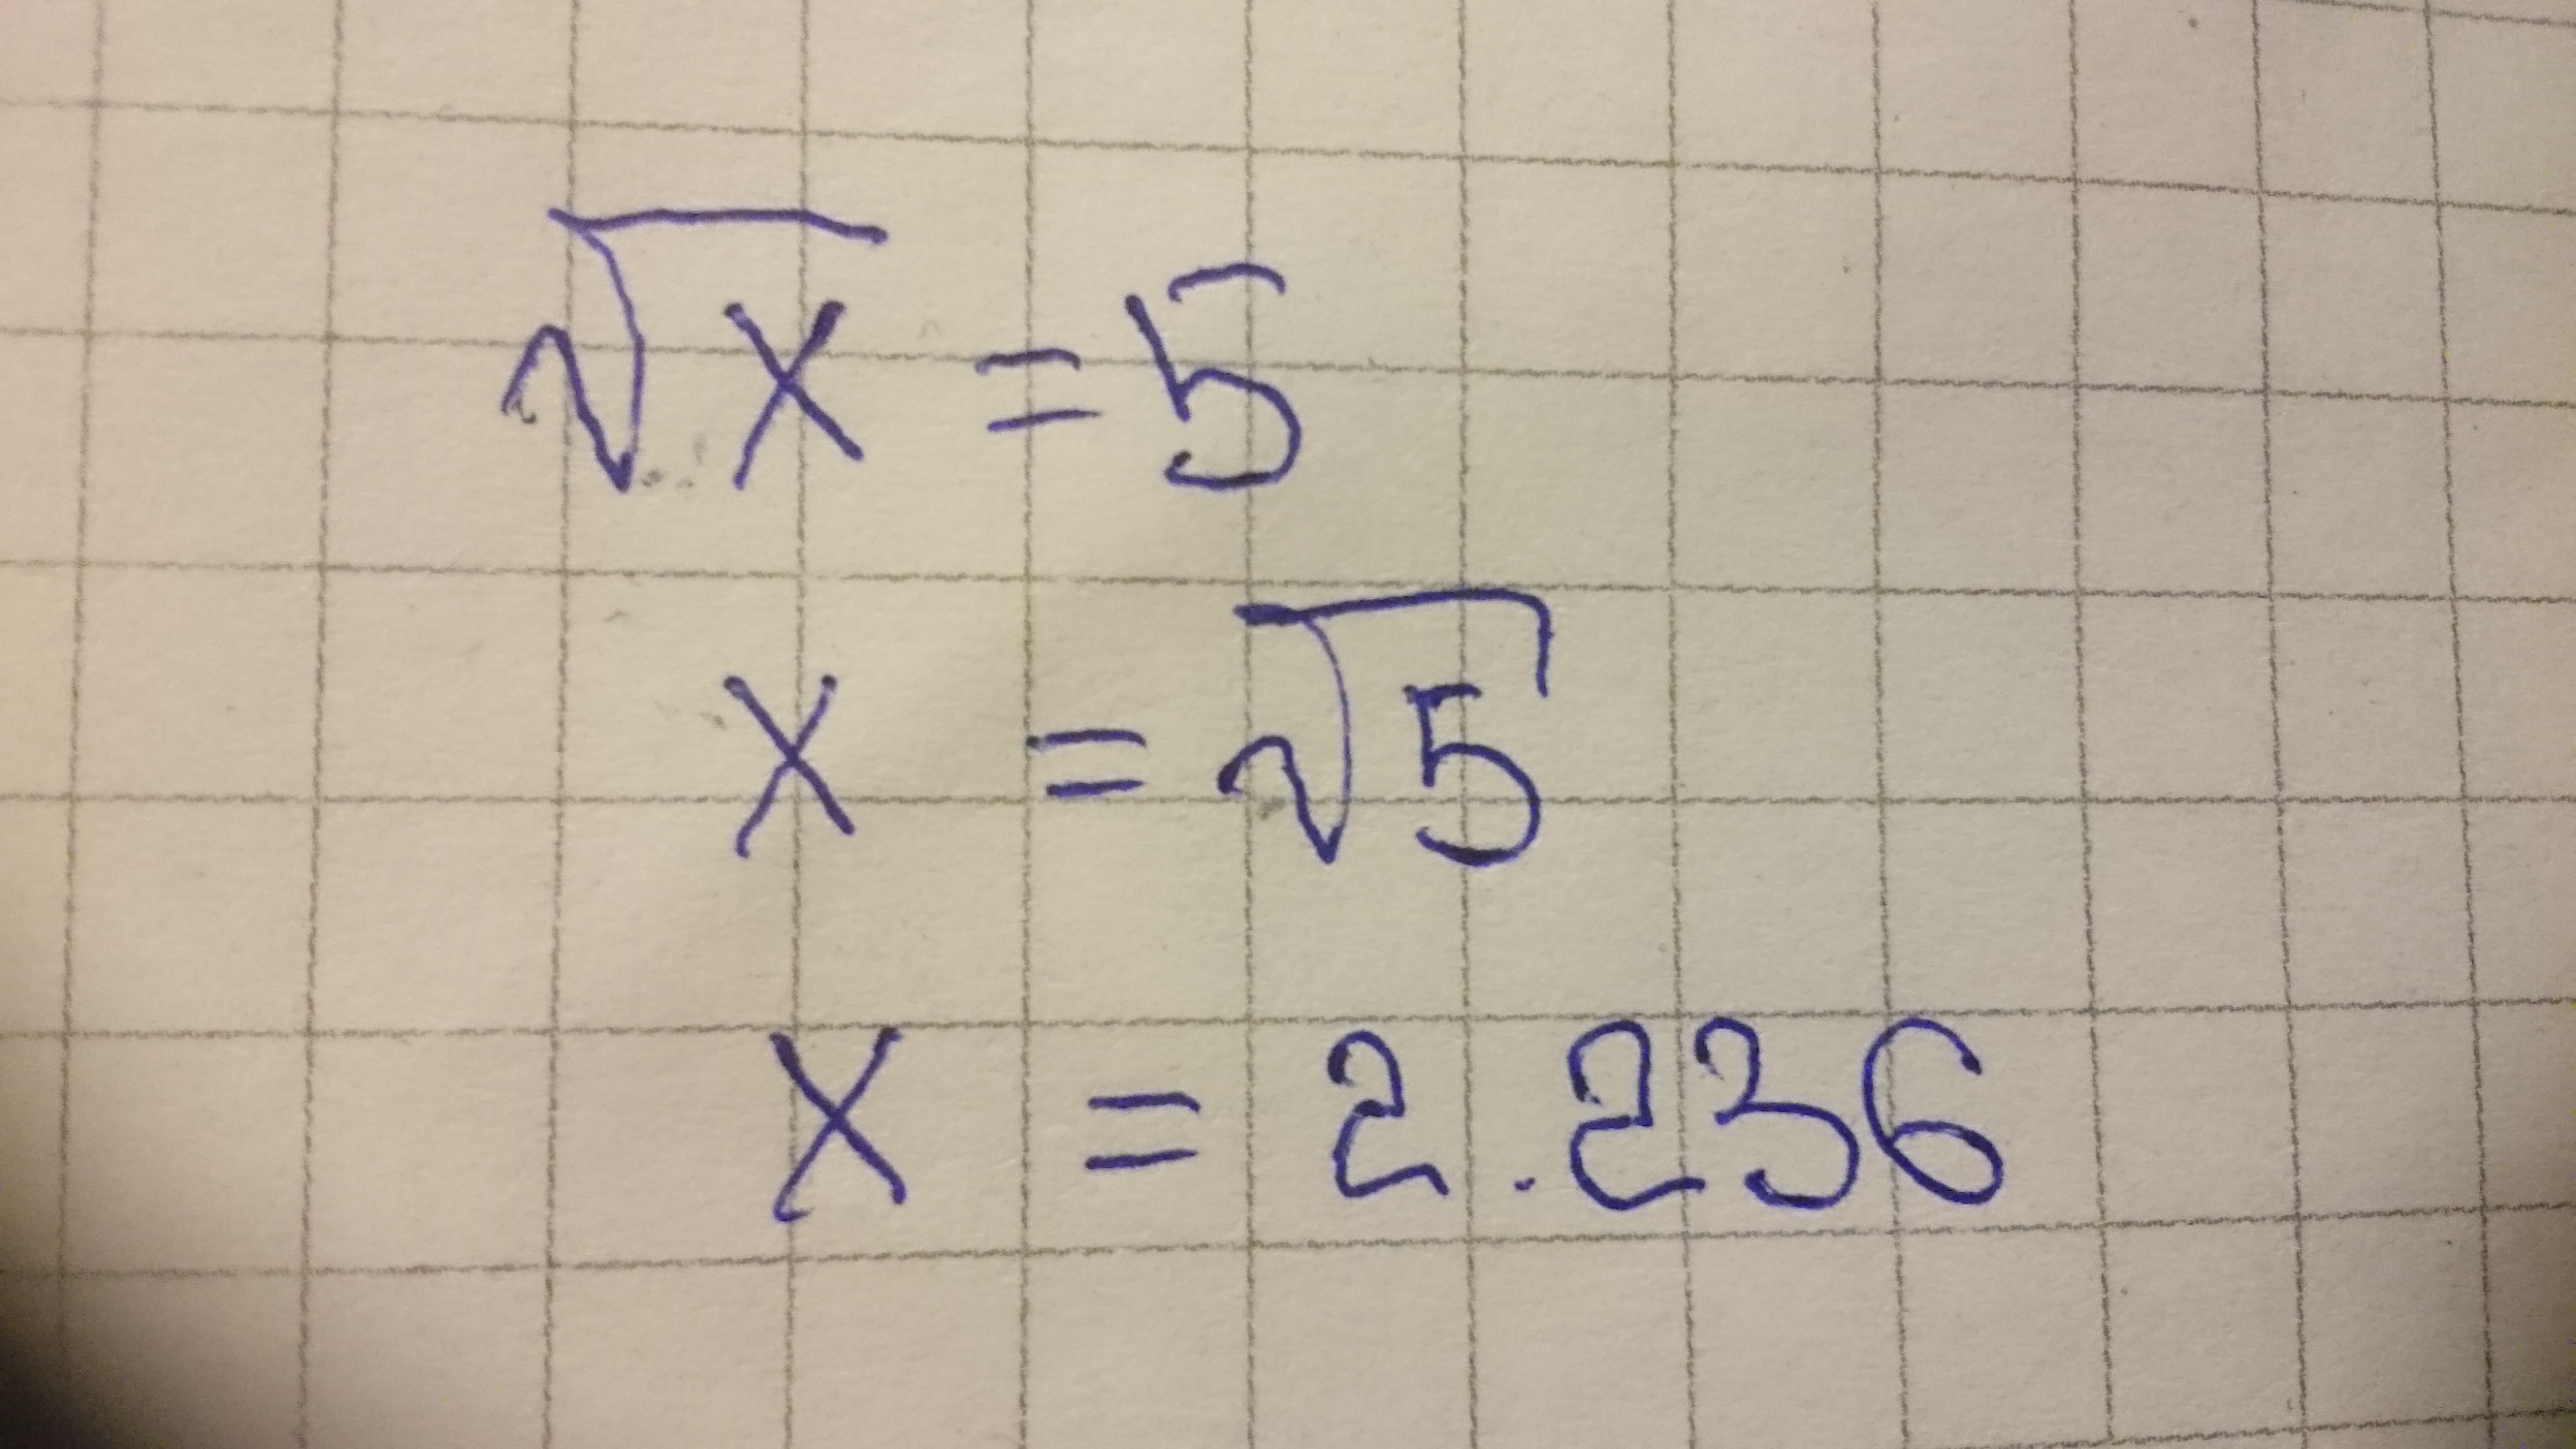 √x = 5
x = √5
x = 2.236